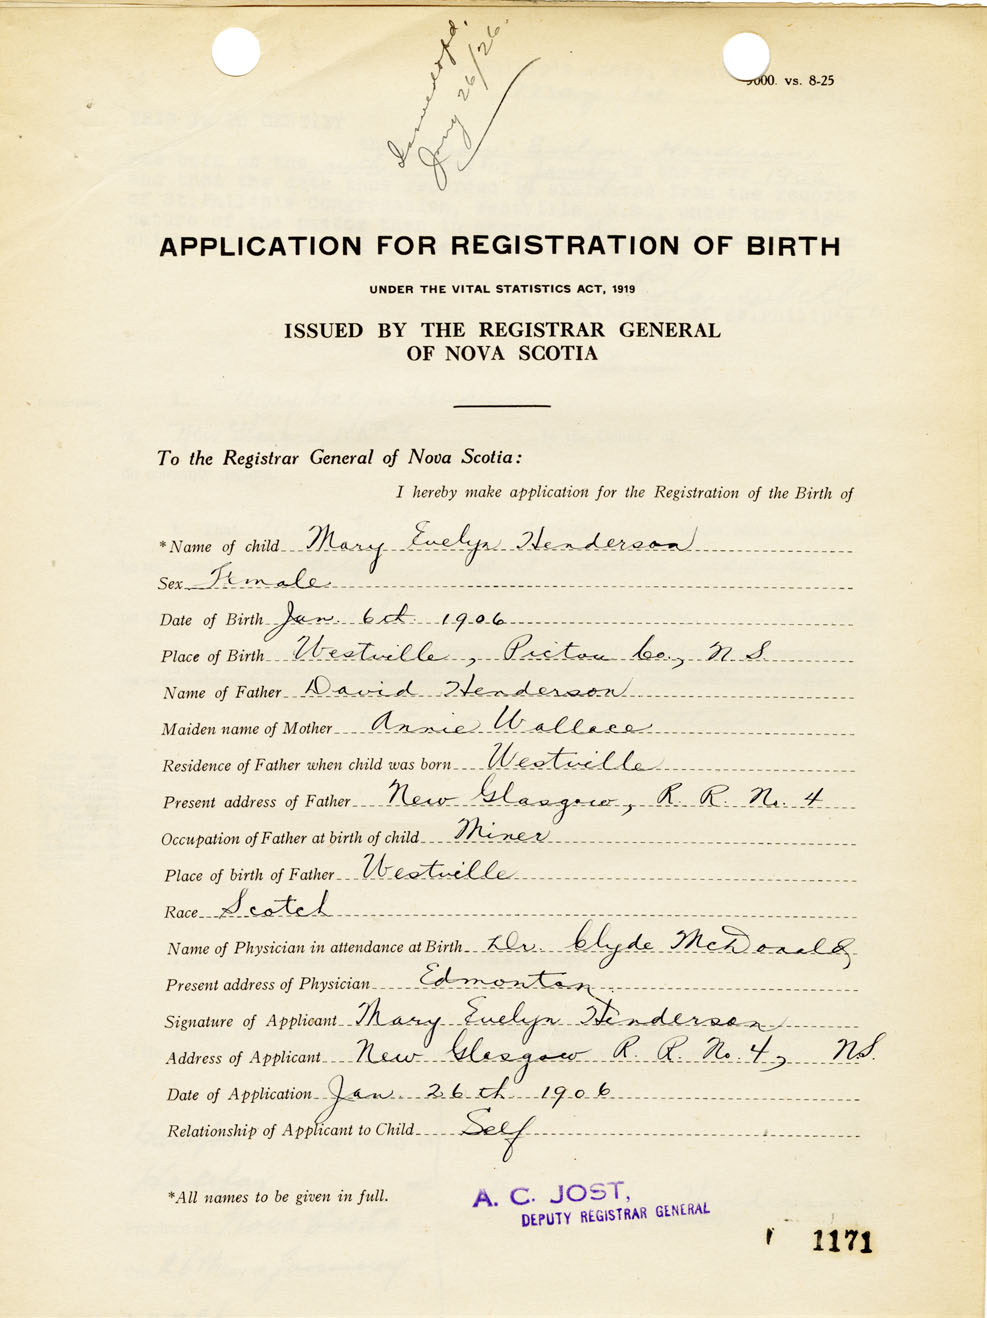 Jany 26/26.
000. vs. 8-25
APPLICATION FOR REGISTRATION OF BIRTH
UNDER THE VITAL STATISTICS ACT, 1919
ISSUED BY THE REGISTRAR GENERAL
OF NOVA SCOTIA
To the Registrar General of Nova Scotia:
I hereby make application for the Registration of the Birth of
*Name of child Mary Evelyn Henderson
Sex Female
Date of Birth Jan. 6th 1906
Place of Birth Westville, Pictou Co., N S.
Name of Father David Henderson
Maiden name of Mother Annie Wallace
Residence of Father when child was born Westville
Present address of Father New Glasgow, R. R. No. 4
Occupation of Father at birth of child Miner
Place of birth of Father Westville
Race Scotch
Name of Physician in attendance at Birth Dr. Clyde McDonald,
Present address of Physician Edmonton.
Signature of Applicant Mary Evelyn Henderson
Address of Applicant New Glasgow R. R. No. 4, N.S.
Date of Application Jan. 26th 1906
Relationship of Applicant to Child Self
*All names to be given in full.
A. C. JOST,
DEPUTY REGISTRAR GENERAL
1171